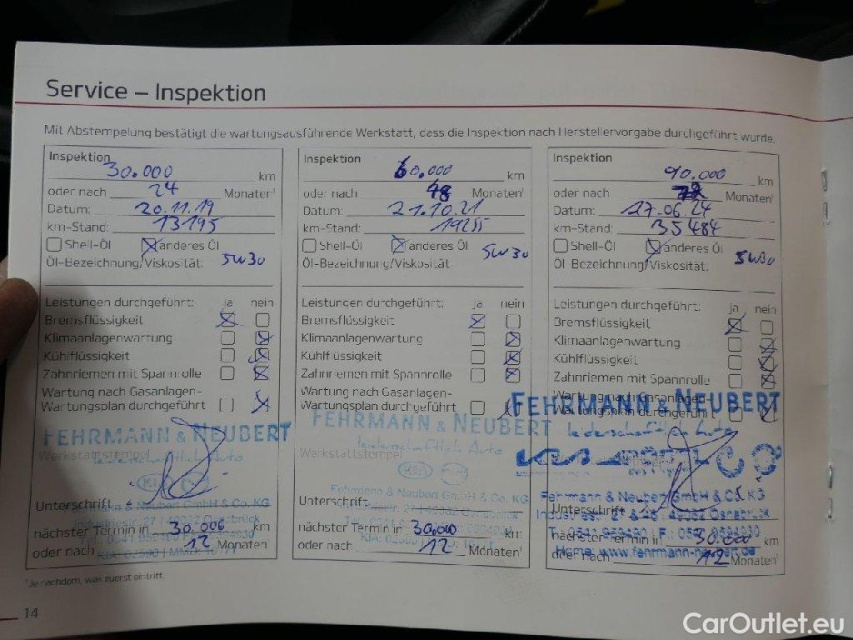 Service – Inspektion
Mit Abstempelung bestätigt die wartungsausführende Werkstatt, dass die Inspektion nach Herstellervorgabe durchgeführt wurde.
Inspektion 30.000 km
oder nach 24 Monaten¹
Datum: 20.11.19
km-Stand: 13195
Shell-Öl anderes Öl
Öl-Bezeichnung/Viskosität: 5W30
Leistungen durchgeführt: ja nein
Bremsflüssigkeit
Klimaanlagenwartung
Kühlflüssigkeit
Zahnriemen mit Spannrolle
Wartung nach Gasanlagen-
Wartungsplan durchgeführt
FEHRMANN & NEUBERT
Leidenschaftlich Auto
Werkstattstempel
Unterschrift
nächster Termin in 30.000 km
oder nach 12 Monaten
Inspektion 60.000 km
oder nach 48 Monaten¹
Datum: 21.10.21
km-Stand: 19255
Shell-Öl anderes Öl
Öl-Bezeichnung/Viskosität 5W30
Leistungen durchgeführt: ja nein
Bremsflüssigkeit
Klimaanlagenwartung
Kühlflüssigkeit
Zahnriemen mit Spannrolle
Wartung nach Gasanlagen-
Wartungsplan durchgeführt
FEHRMANN & NEUBERT
Leidenschaftlich Auto
Werkstattstempel
Fehrmann & Neubert GmbH & Co. KG
Unterschrift
nächster Termin in 30.000 km
oder nach 12 Monaten¹
Inspektion 90.000 km
oder nach 72 Monaten¹
Datum: 17.06.24
km-Stand: 35484
Shell-Öl anderes Öl
Öl-Bezeichnung/Viskosität: 5W30
Leistungen durchgeführt: ja nein
Bremsflüssigkeit
Klimaanlagenwartung
Kühlflüssigkeit
Zahnriemen mit Spannrolle
Wartung nach Gasanlagen-
Wartungsplan durchgeführt
FEHRMANN & NEUBERT
Leidenschaftlich Auto
Fehrmann & Neubert GmbH & Co. KG
Unterschrift
nächster Termin in 30.000 km
oder nach 12 Monaten¹
¹Je nachdem, was zuerst eintritt.
14
CarOutlet.eu